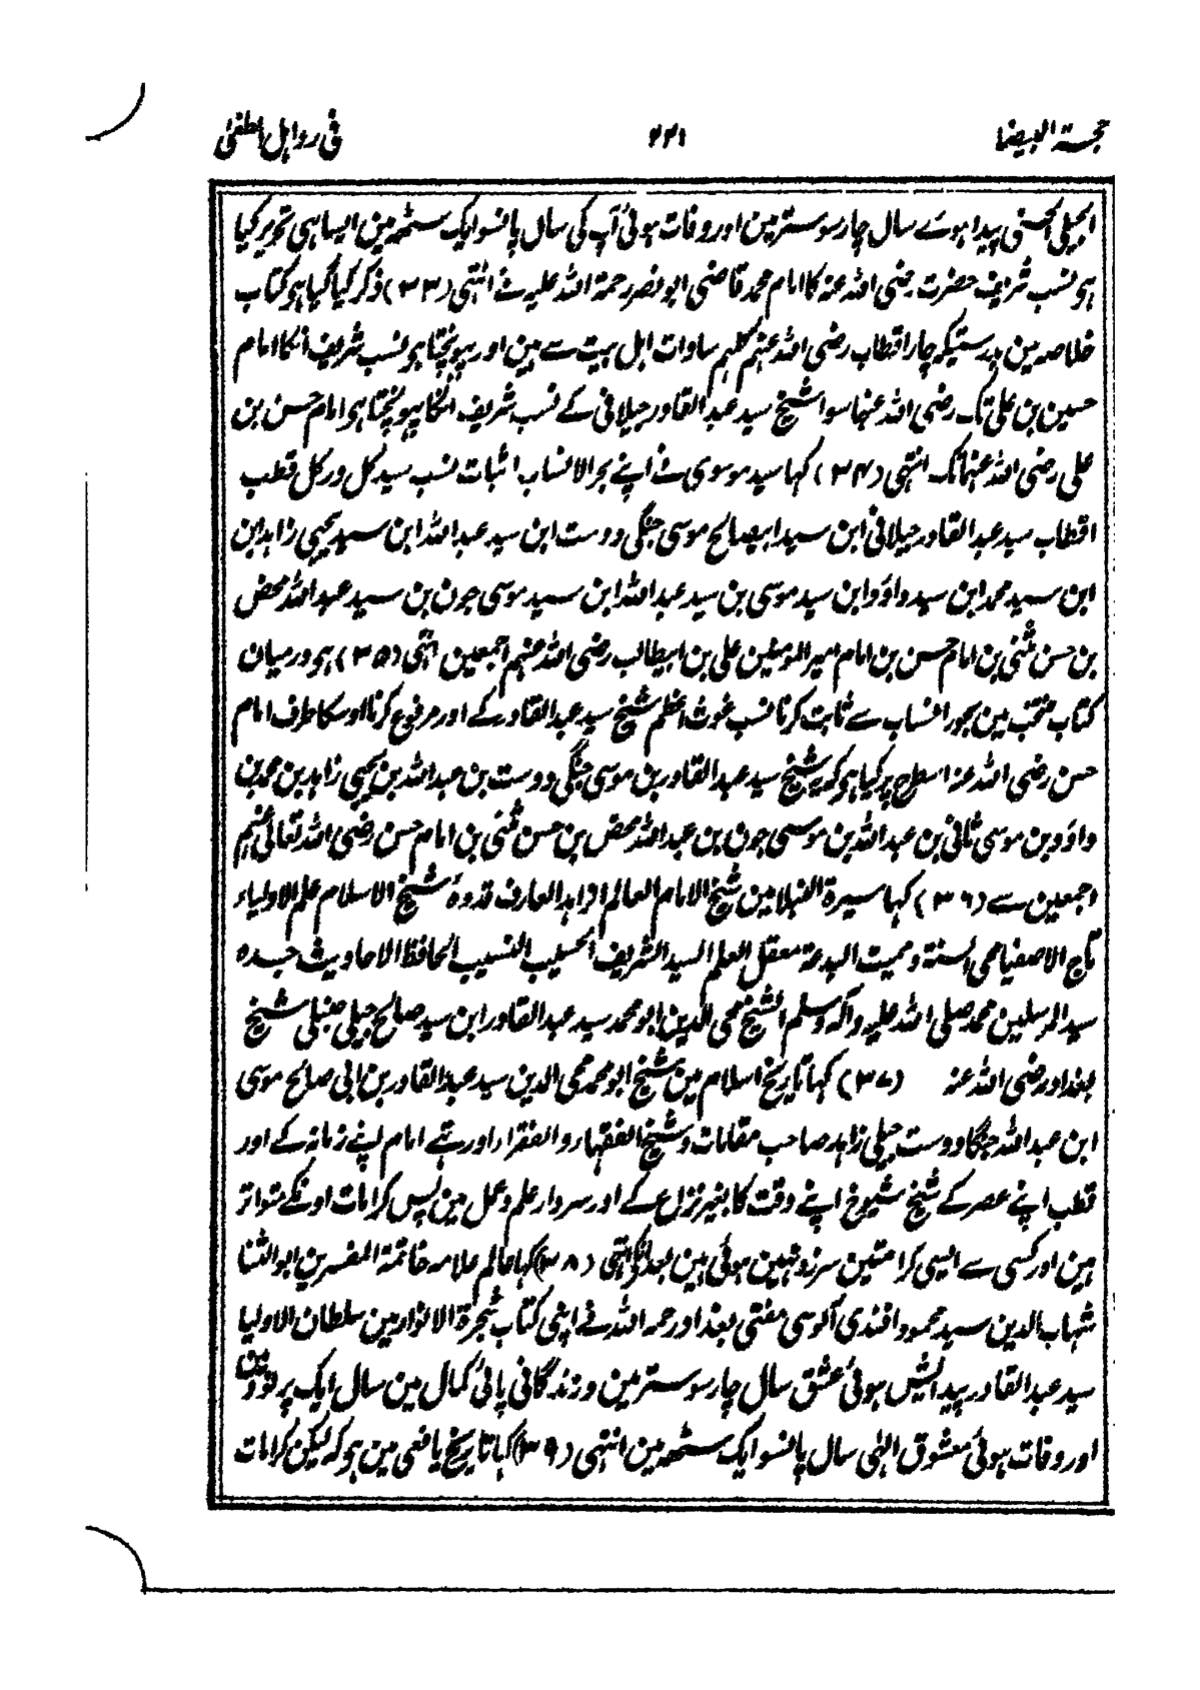 حجۃ البیضا ۲۲۱ فی رد اہل الطغیٰ
الجیلی الحسنی پیدا ہوے سال چار سو ستر مین اور وفات ہوئی آپ کی سال پانسو ایک سٹھ مین ایسا ہی تحریر کیا
ہو نسب شریف حضرت رضی اللہ عنہ کا امام محمد قاضی ابو نصر رحمۃ اللہ علیہ نے انتہی (۳۳) ذکر کیا گیا ہو کتاب
خلاصہ مین بدرستیکہ چار اقطاب رضی اللہ عنہم کلہم سادات اہل بیت سے ہین اور پہونچتا ہو نسب شریف انکا امام
حسین بن علی تک رضی اللہ عنہما سوا شیخ سید عبد القادر جیلانی کے نسب شریف انکا پہونچتا ہو امام حسن بن
علی رضی اللہ عنہما تک انتہی (۳۴) کہا سید موسوی نے اپنے بحر الانساب اثبات نسب سید کل ور کل قطب
اقطاب سید عبد القادر جیلانی ابن سید ابیصالح موسی جنگی دوست ابن سید عبد اللہ ابن سید یحیی زاہد ابن
ابن سید محمد ابن سید داؤد ابن سید موسی بن سید عبد اللہ ابن سید موسی جون بن سید عبد اللہ محض
بن حسن مثنی بن امام حسن بن امام امیر المومنین علی بن ابیطالب رضی اللہ عنہم اجمعین انتہی (۳۵) ہو درمیان
کتاب منتخب مین بحور انساب سے ثابت کرنا نسب غوث اعظم شیخ سید عبد القادر کے اور مرفوع کرنا اوسکا طرف امام
حسن رضی اللہ عنہ اسطرح پر کیا ہو کہ شیخ سید عبد القادر بن موسی جنگی دوست بن عبد اللہ بن یحیی زاہد بن محمد بن
داؤد بن موسی ثانی بن عبد اللہ بن موسی جون بن عبد اللہ محض بن حسن مثنی بن امام حسن رضی اللہ تعالی عنہم
اجمعین سے (۳۶) کہا سیرۃ النبلا مین شیخ الامام العالم الزاہد العارف قدوۃ شیخ الاسلام علم الاولیاء
تاج الاصفیا محی السنۃ و ممیت البدعۃ معقل العلم السید الشریف الحسیب النسیب الحافظ الاحادیث جدہ
سید المرسلین محمد صلی اللہ علیہ وآلہ وسلم الشیخ محی الدین ابو محمد سید عبد القادر ابن سید صالح جیلی حنبلی شیخ
بغداد رضی اللہ عنہ (۳۷) کہا تاریخ اسلام مین شیخ ابو محمد محی الدین سید عبد القادر بن ابی صالح موسی
ابن عبد اللہ جنگا دوست جیلی زاہد صاحب مقامات و شیخ الفقہا و الفقراء اور تہے امام اپنے زمانہ کے اور
قطب اپنے عصر کے شیخ شیوخ اپنے وقت کا بغیر نزاع کے اور سردار علم و عمل مین پس کرامات اونکے متواتر
ہین اور کسی سے ایسی کرامتین سرزد نہین ہوئی ہین بعد انکے انتہی (۳۸) کہا عالم علامہ خاتمۃ المفسرین ابو الثنا
شہاب الدین سید محمود افندی آلوسی مفتی بغداد رحمہ اللہ نے اپنی کتاب شجرۃ الانوار مین سلطان الاولیا
سید عبد القادر پیدائش ہوئی عشق سال چار سو ستر مین و زندگانی پائی کمال مین سال ایک پر نود مین
اور وفات ہوئی معشوق الہی سال پانسو ایک سٹھ مین انتہی (۳۹) کہا تاریخ یافعی مین ہو کہ لیکن کرامات